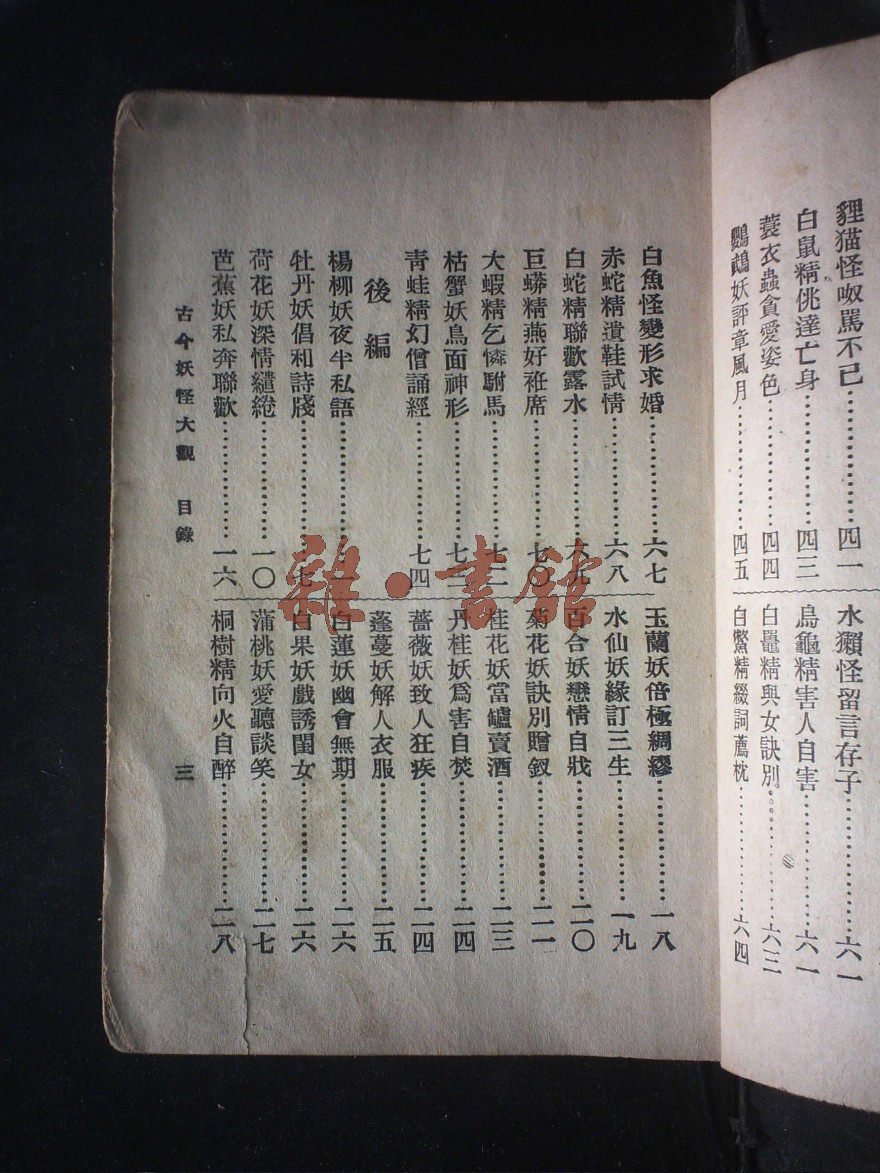 貍猫怪呶罵不已……四一
白鼠精佻達亡身……四三
蓑衣蟲貪愛姿色……四四
鸚鵡妖評章風月……四五
水獺怪留言存子……六一
烏龜精害人自害……六一
白鼉精與女訣別……六三
白鱉精綴詞薦枕……六四
白魚怪變形求婚……六七
赤蛇精遺鞋試情……六八
白蛇精聯歡露水……六九
巨蟒精燕好袵席……七〇
大蝦精乞憐駙馬……七二
枯蟹妖鳥面神形……七三
青蛙精幻僧誦經……七四
後編
楊柳妖夜半私語……一
牡丹妖倡和詩牋……七
荷花妖深情繾綣……一〇
芭蕉妖私奔聯歡……一六
玉蘭妖倍極綢繆……一八
水仙妖緣訂三生……一九
百合妖戀情自戕……二〇
菊花妖訣別贈釵……二一
桂花妖當罏賣酒……二三
丹桂妖爲害自焚……二四
薔薇妖致人狂疾……二四
蓬蔓妖解人衣服……二五
白蓮妖幽會無期……二六
白果妖戲誘閨女……二六
蒲桃妖愛聽談笑……二七
桐樹精向火自醉……二八
古今妖怪大觀 目錄
三
雜·書館